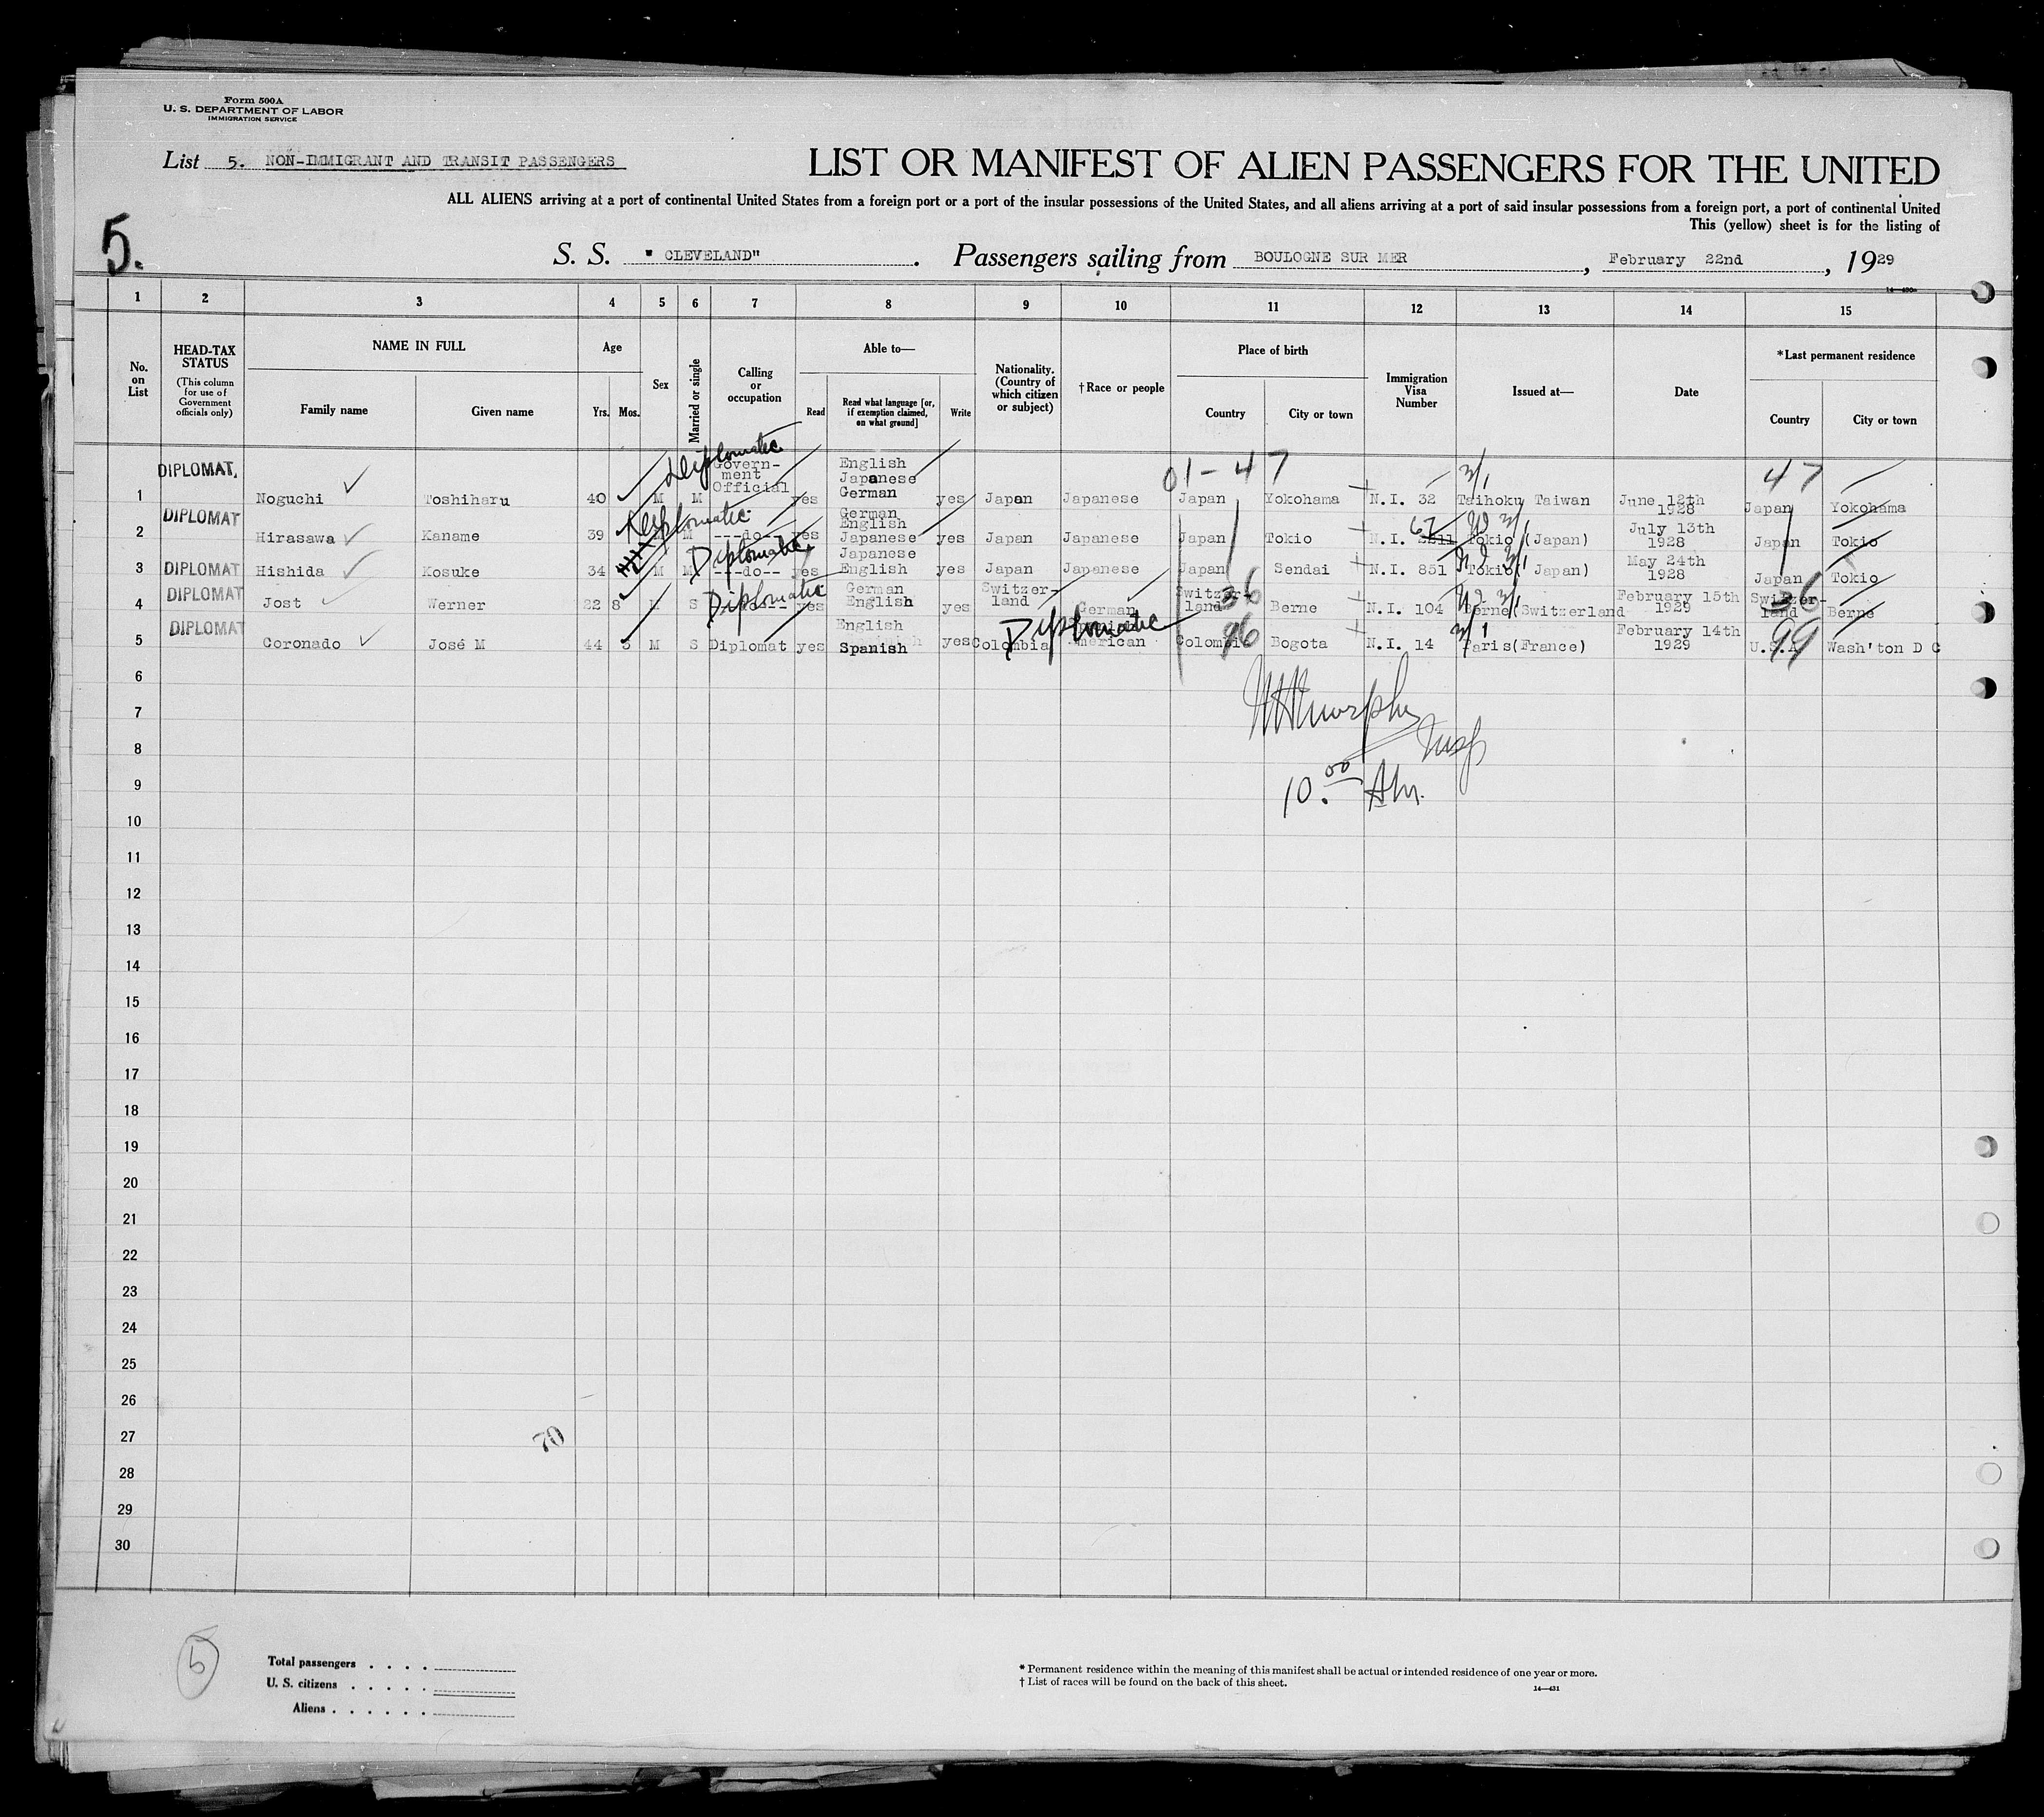 Form 500A
U. S. DEPARTMENT OF LABOR
IMMIGRATION SERVICE
List 5. NON-IMMIGRANT AND TRANSIT PASSENGERS
LIST OR MANIFEST OF ALIEN PASSENGERS FOR THE UNITED
ALL ALIENS arriving at a port of continental United States from a foreign port or a port of the insular possessions of the United States, and all aliens arriving at a port of said insular possessions from a foreign port, a port of continental United
This (yellow) sheet is for the listing of
5.
S. S. " CLEVELAND" . Passengers sailing from BOULOGNE SUR MER , February 22nd , 1929
1 2 3 4 5 6 7 8 9 10 11 12 13 14 15
No. on List
HEAD-TAX STATUS (This column for use of Government officials only)
NAME IN FULL
Family name Given name
Age
Yrs. Mos.
Sex
Married or single
Calling or occupation
Able to—
Read
Read what language [or, if exemption claimed, on what ground]
Write
Nationality. (Country of which citizen or subject)
†Race or people
Place of birth
Country City or town
Immigration Visa Number
Issued at—
Date
*Last permanent residence
Country City or town
1 DIPLOMAT. Noguchi Toshiharu 40 M M Diplomatic Government Official yes English Japanese German yes Japan Japanese 01-47 Japan Yokohama N.I. 32 3/1 Taihoku Taiwan June 12th 1928 47 Japan Yokohama
2 DIPLOMAT Hirasawa Kaname 39 M M Diplomatic ---do-- yes German English Japanese yes Japan Japanese Japan Tokio N.I. 67 Tokio (Japan) July 13th 1928 Japan Tokio
3 DIPLOMAT Hishida Kosuke 34 M M Diplomatic ---do-- yes Japanese English yes Japan Japanese Japan Sendai N.I. 851 Tokio Japan) May 24th 1928 Japan Tokio
4 DIPLOMAT Jost Werner 22 8 M S Diplomatic yes German English yes Switzer-land German Switzer-land 36 Berne N.I. 104 Berne(Switzerland February 15th 1929 Switzer-land 36 Berne
5 DIPLOMAT Coronado José M 44 3 M S Diplomat yes English Spanish yes Colombia Diplomatic American Colombia 96 Bogota N.I. 14 3/1 Paris(France) February 14th 1929 U.S.A. 99 Wash'ton D C
6
7
8
9
10
11
12
13
14
15
16
17
18
19
20
21
22
23
24
25
26
27
28
29
30
Murphy
Insp
10.00 AM.
70
5
Total passengers . . . .
U. S. citizens . . . . .
Aliens . . . . . .
* Permanent residence within the meaning of this manifest shall be actual or intended residence of one year or more.
† List of races will be found on the back of this sheet.
14—431